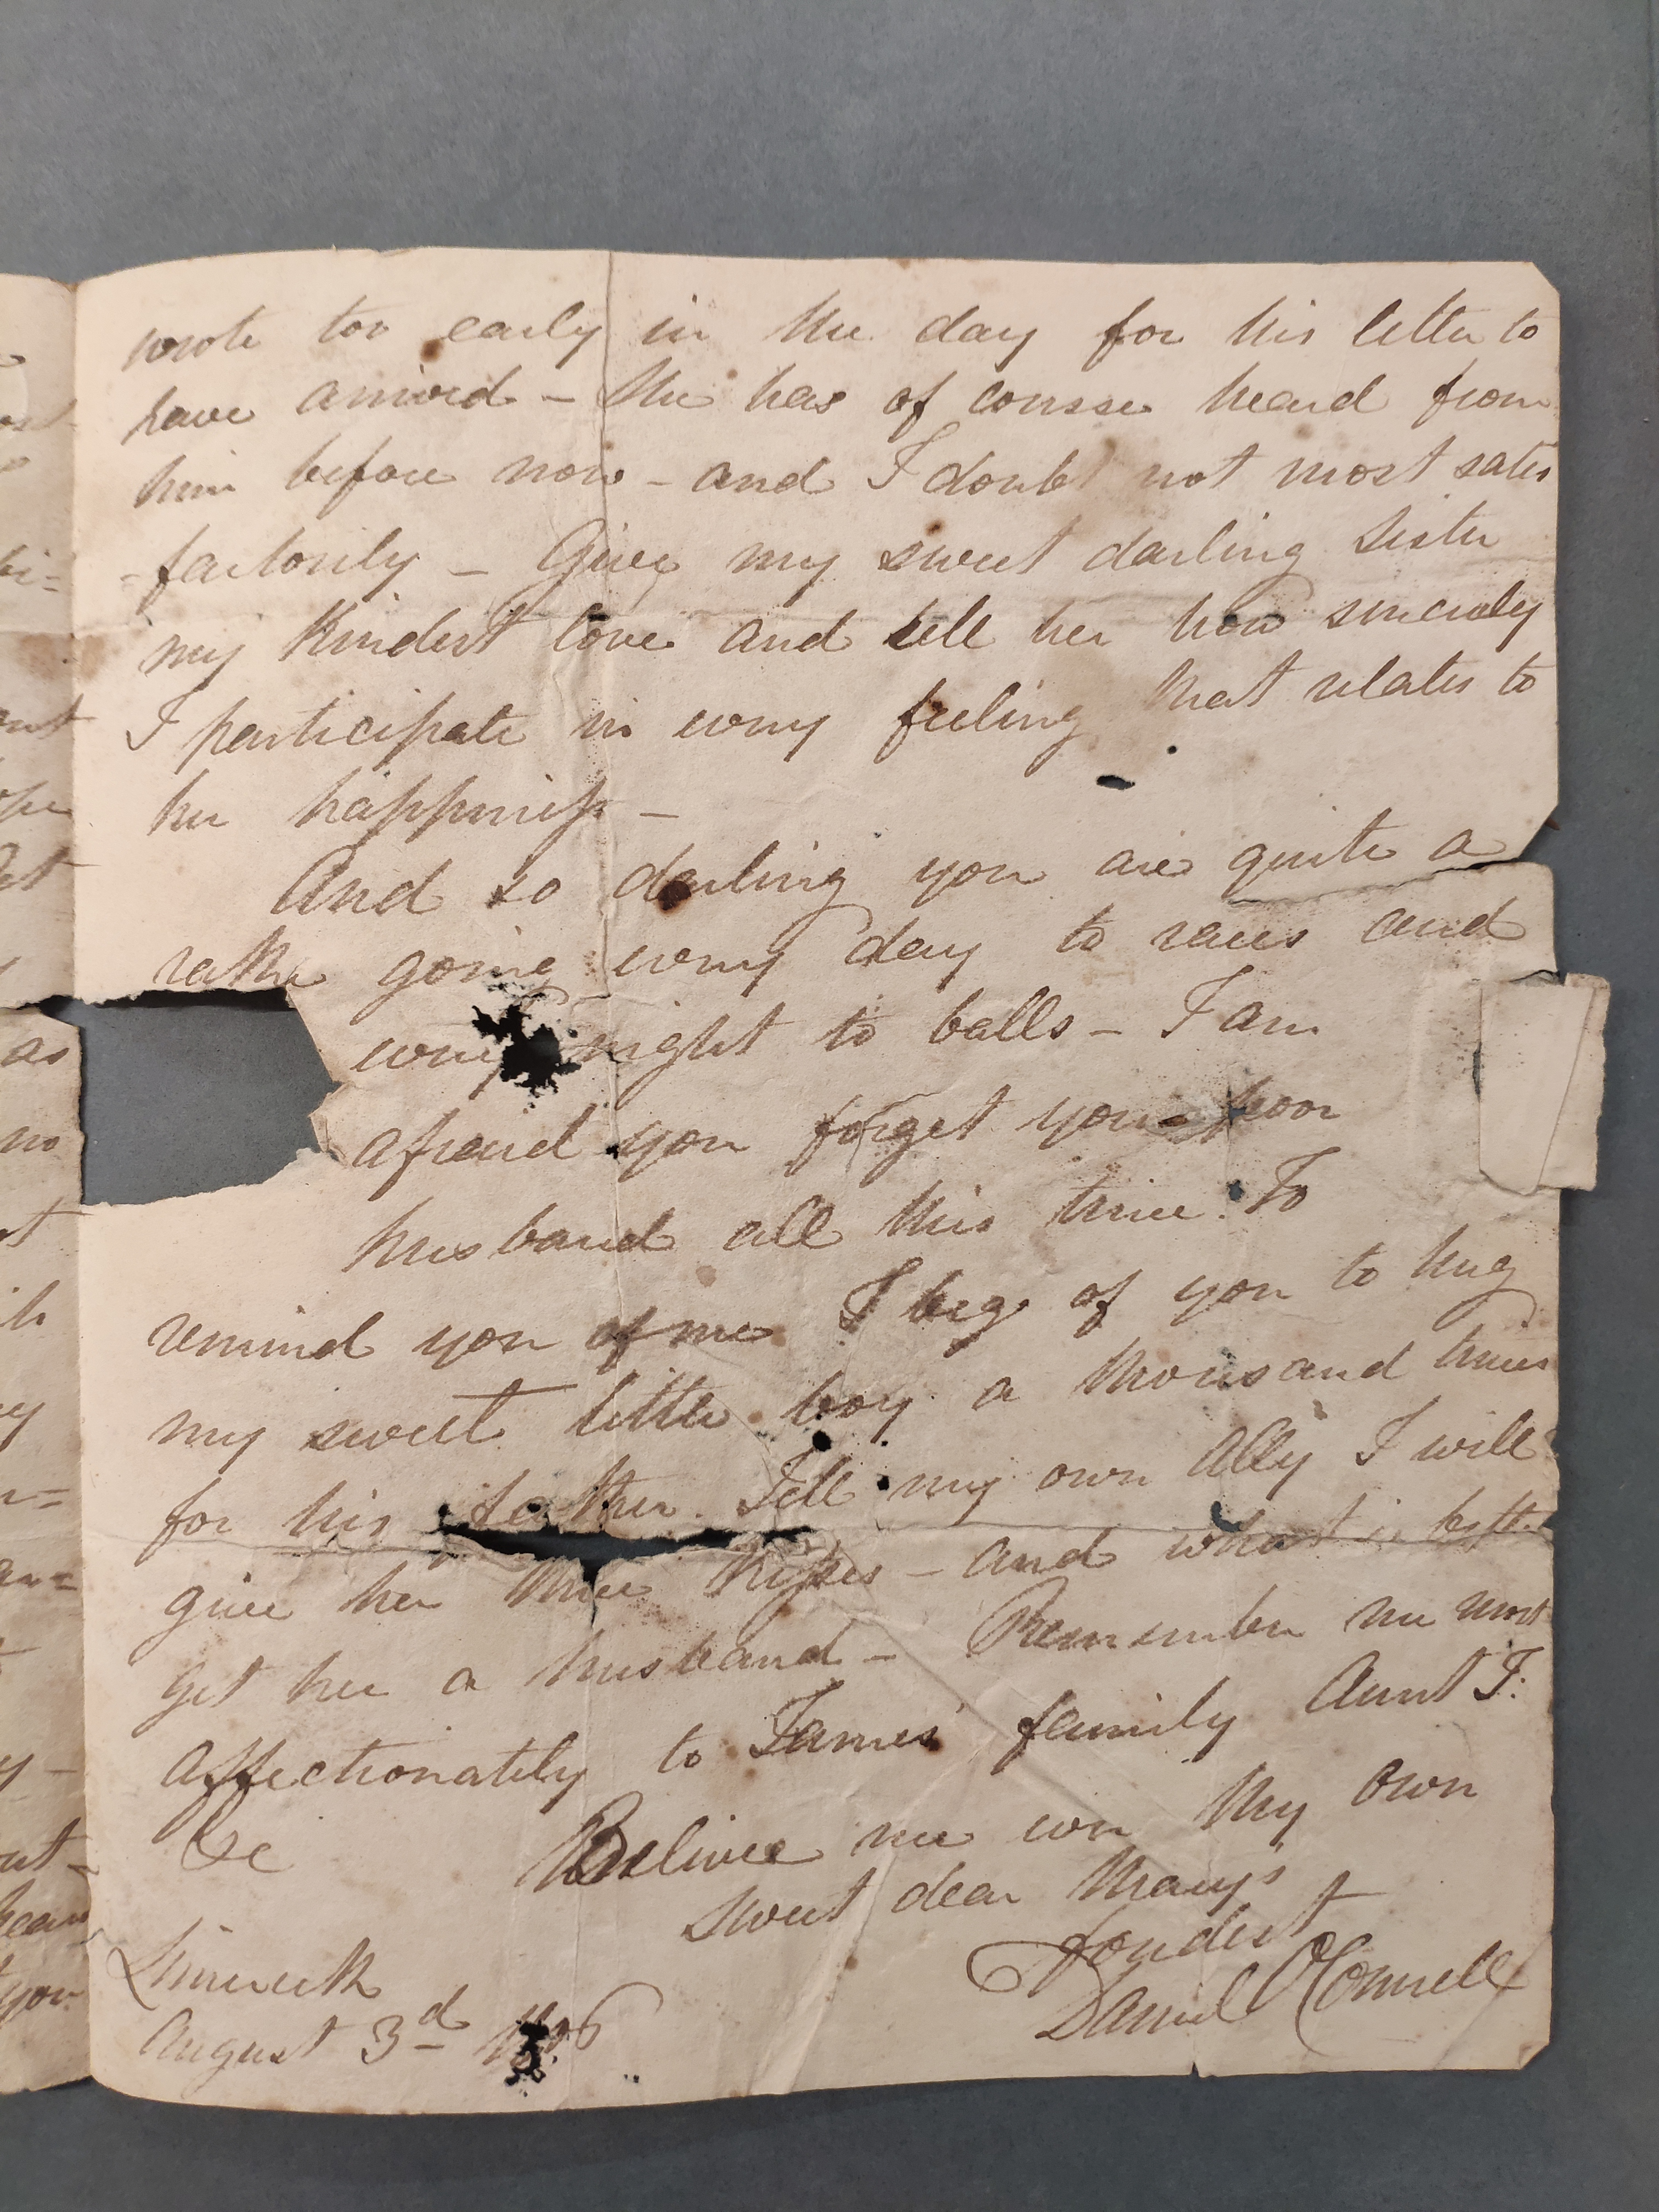 wrote too early in the day for his letter to
have arrived – She has of course heard from
him before now – and I doubt not most satis
=factorily – Give my sweet darling sister
my kindest love and tell her how sincerely
I participate in every feeling that relates to
her happiness –
And so darling you are quite a
rake going every day to races and
every night to balls – I am
afraid you forget your poor
husband all this time. To
remind you of me I beg of you to hug
my sweet little boy a thousand times
for his father. Tell my own Ally I will
give her three kisses – and what is better
get her a husband – Remember me most
affectionately to James' family Aunt T:
&c Believe me ever My own
sweet dear Mary's
fondest
Daniel O'Connell
Limerick
August 3d